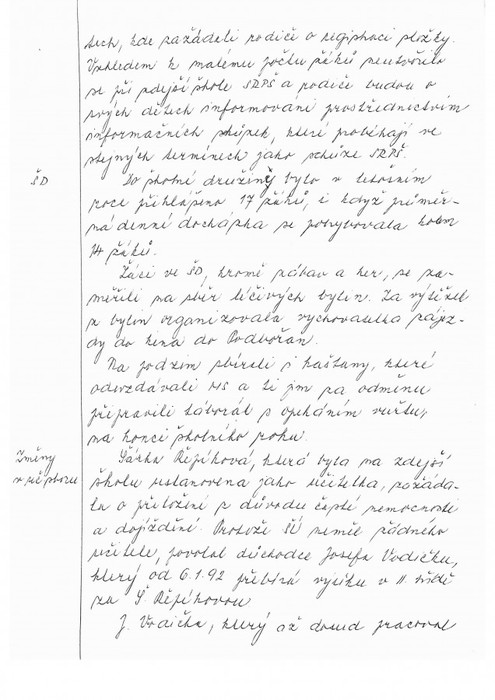 tech, kde požádali rodiče o
Vzhledem k malému počtu žáků neutvořilo
se při zdejší škole SRPŠ a rodiče budou o
svých dětech informováni prostřednictvím
informačních schůzek, které probíhají ve
stejných termínech jako schůze SRPŠ.
ŠD
Do školní družiny bylo v letošním
roce přihlášeno 17 žáků, i když průměr-
ná denní docházka se pohybovala kolem
14 žáků.
Žáci ve ŠD, kromě zábav a her, se za-
měřili na sběr léčivých bylin. Za výtěžek
z bylin organizovala vychovatelka zájez-
dy do kina do Podbořan.
Na podzim sbírali i kaštany, které
odevzdávali MS a ti jim za odměnu
připravili táborák s opékáním vuřtů,
na konci školního roku.
Změny
v uč. sboru
Šárka Řepíková, která byla na zdejší
školu ustanovena jako učitelka, požáda-
la o přeložení z důvodu časté nemocnosti
a dojíždění. Protože ŠÚ neměl řádného
učitele, povolal důchodce Josefa Vodičku,
který od 6.1.92 přebírá výuku v II. třídě
za Š. Řepíkovou
J. Vodička, který až dosud pracoval